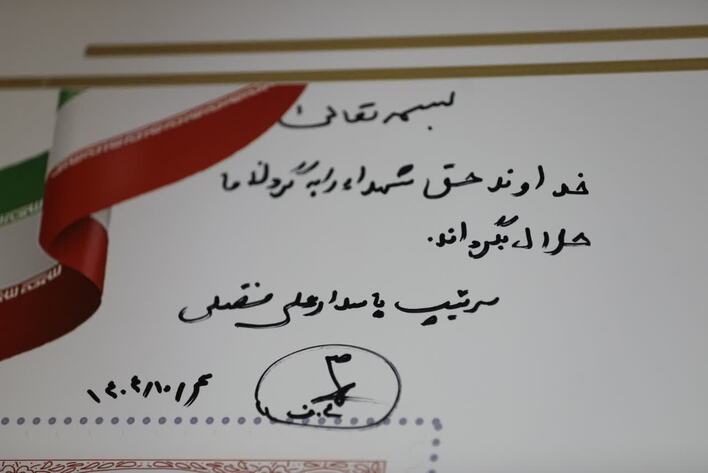 بسمه تعالی
خداوند حق شهداء را به گردن ما
حلال بگرداند.
سرتیپ پاسدار علی فضلی
۱۴۰۴/۱۰/